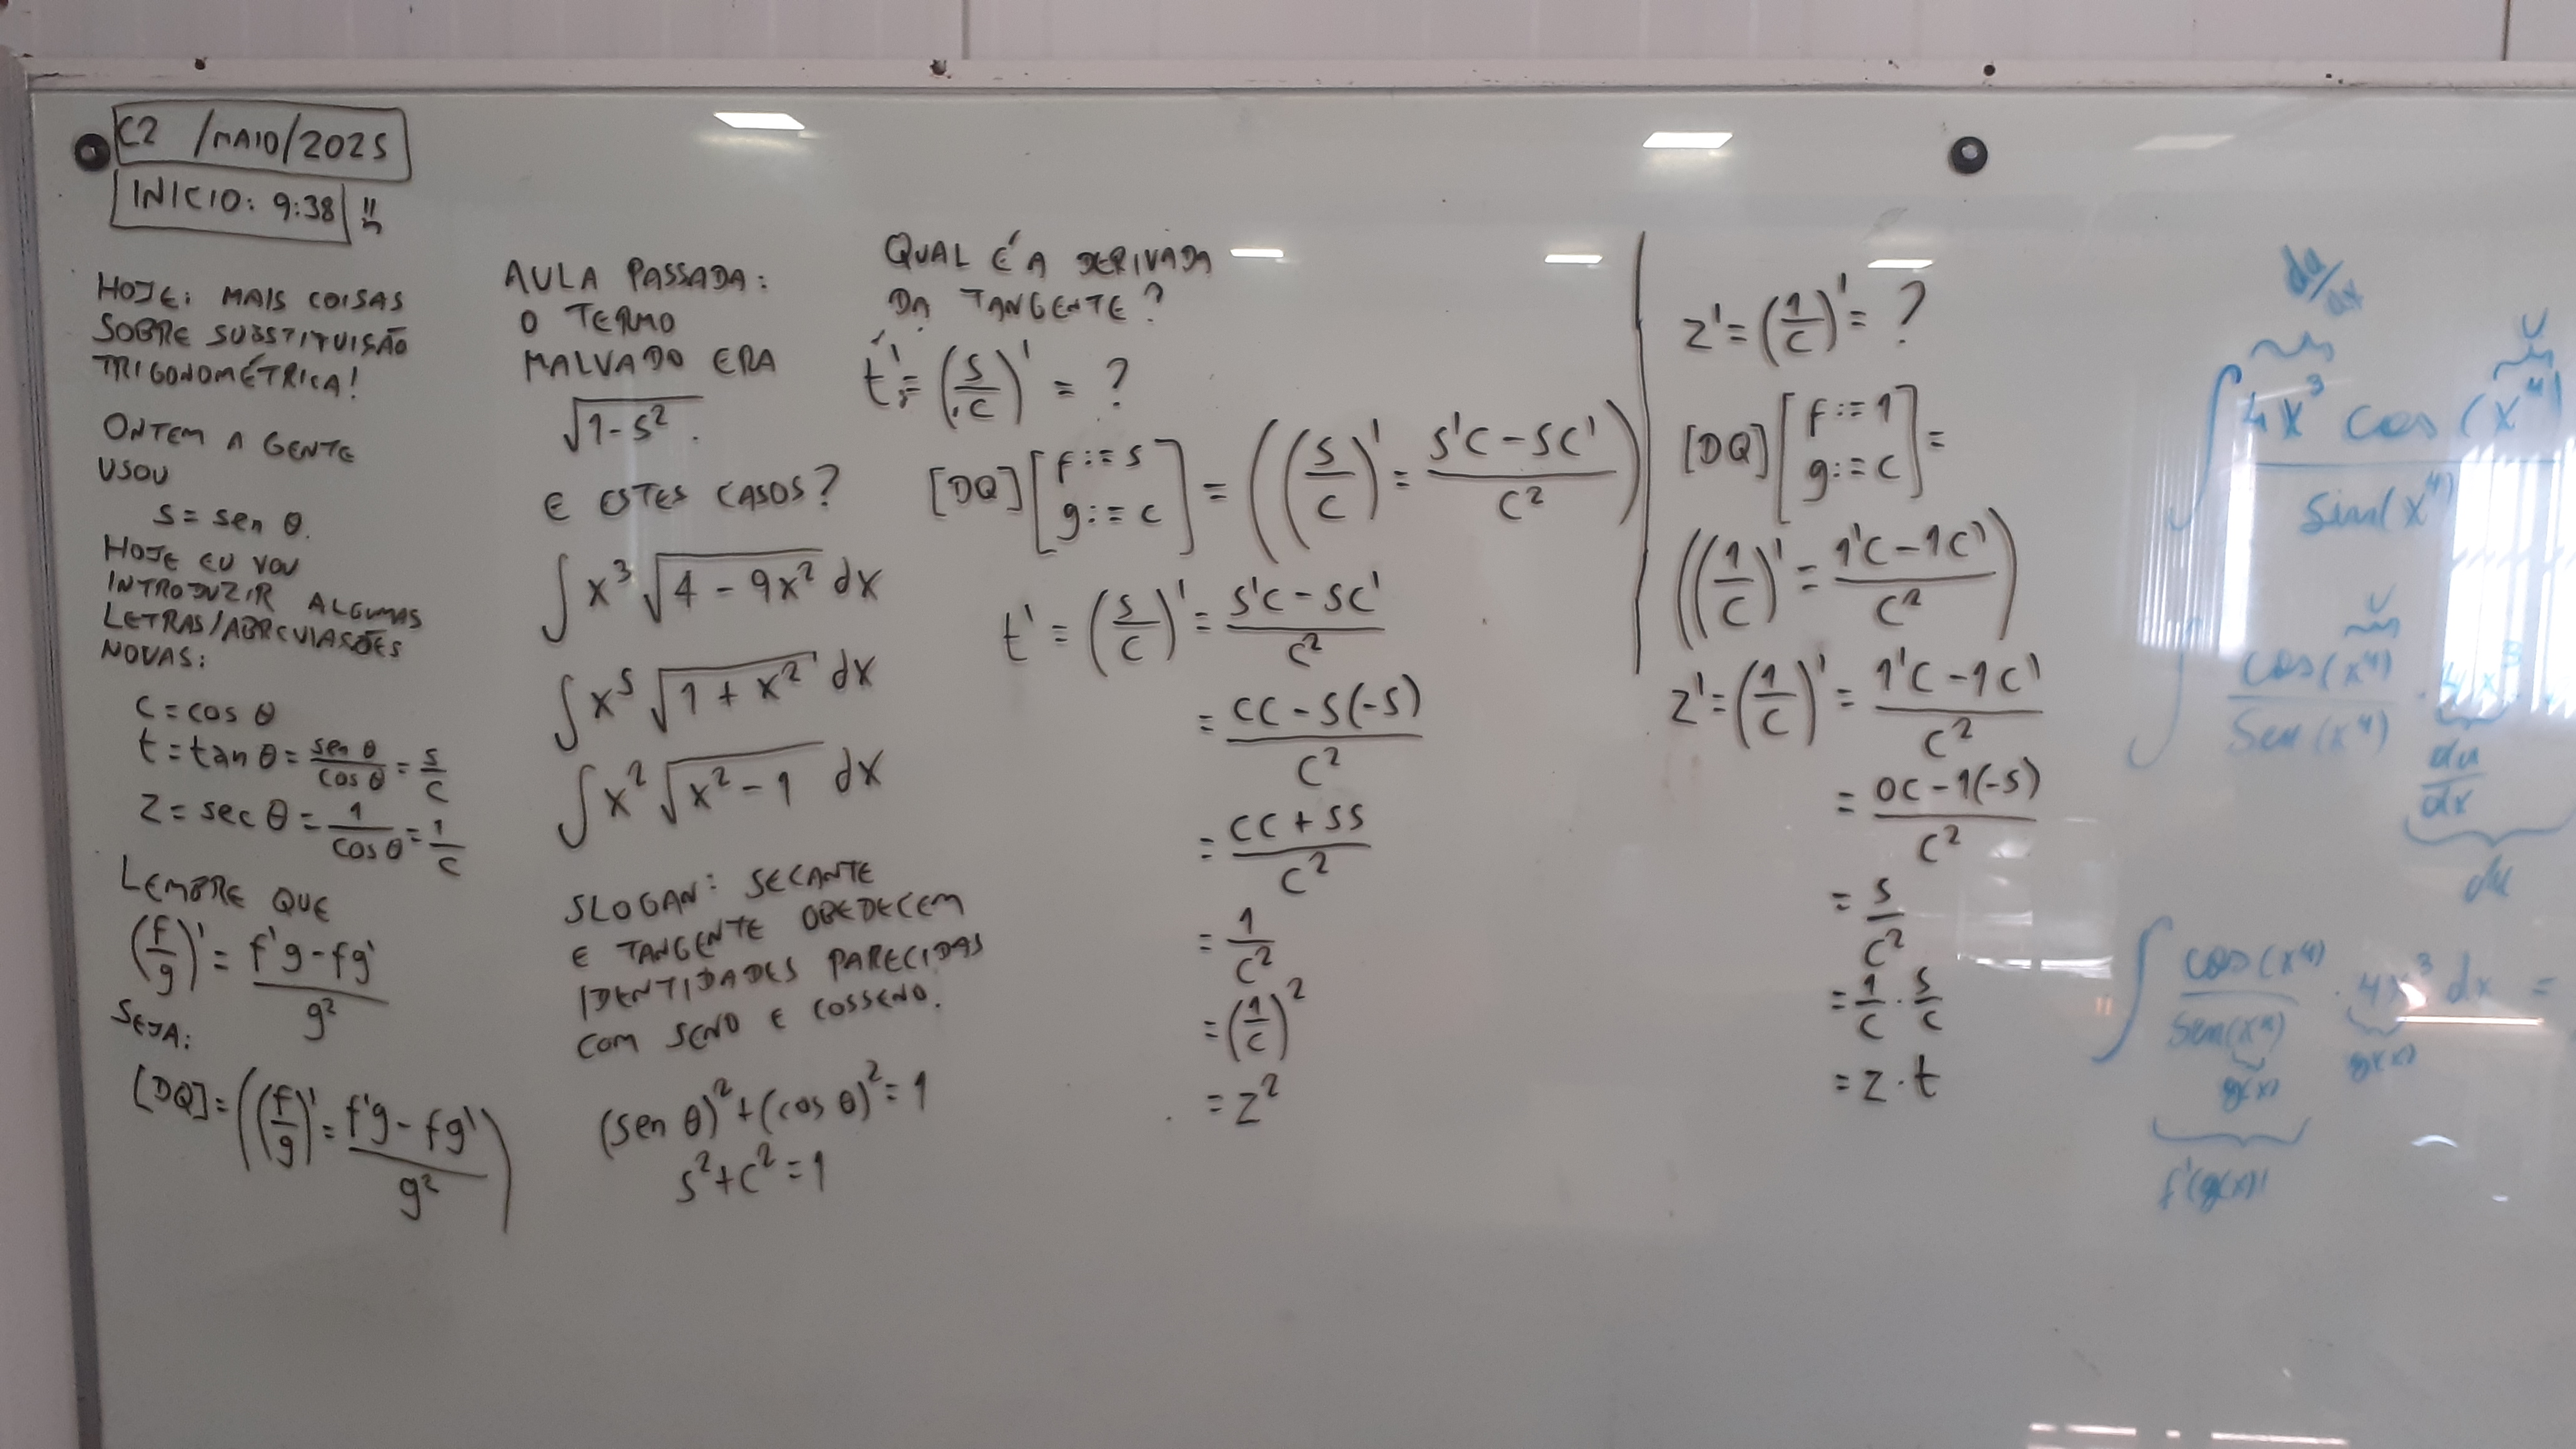 C2 /MAIO/2025
INICIO: 9:38 !!
HOJE: MAIS COISAS
SOBRE SUBSTITUIÇÃO
TRIGONOMÉTRICA!
ONTEM A GENTE
USOU
s = sen θ.
HOJE EU VOU
INTRODUZIR ALGUMAS
LETRAS/ABREVIAÇÕES
NOVAS:
c = cos θ
t = tan θ = sen θ / cos θ = s/c
z = sec θ = 1 / cos θ = 1/c
LEMBRE QUE
(f/g)' = (f'g - fg') / g²
SEJA:
[DQ] = ((f/g)' = (f'g - fg') / g²)
AULA PASSADA:
O TERMO
MALVADO ERA
√(1-s²).
E ESTES CASOS?
∫ x³ √(4 - 9x²) dx
∫ x⁵ √(1 + x²) dx
∫ x² √(x² - 1) dx
SLOGAN: SECANTE
E TANGENTE OBEDECEM
IDENTIDADES PARECIDAS
COM SENO E COSSENO.
(sen θ)² + (cos θ)² = 1
s² + c² = 1
QUAL É A DERIVADA
DA TANGENTE?
t' = (s/c)' = ?
[DQ] [f := s g := c] = ((s/c)' = (s'c - sc') / c²)
t' = (s/c)' = (s'c - sc') / c²
= (cc - s(-s)) / c²
= (cc + ss) / c²
= 1/c²
= (1/c)²
= z²
z' = (1/c)' = ?
[DQ] [f := 1 g := c] =
((1/c)' = (1'c - 1c') / c²)
z' = (1/c)' = (1'c - 1c') / c²
= (0c - 1(-s)) / c²
= s/c²
= 1/c · s/c
= z · t
du/dx
u
∫ 4x³ cos(x⁴) / sen(x⁴)
u
∫ cos(x⁴) / sen(x⁴) · 4x³
du/dx
du
∫ cos(x⁴) / sen(x⁴) · 4x³ dx =
g(x) g'(x)
f'(g(x))